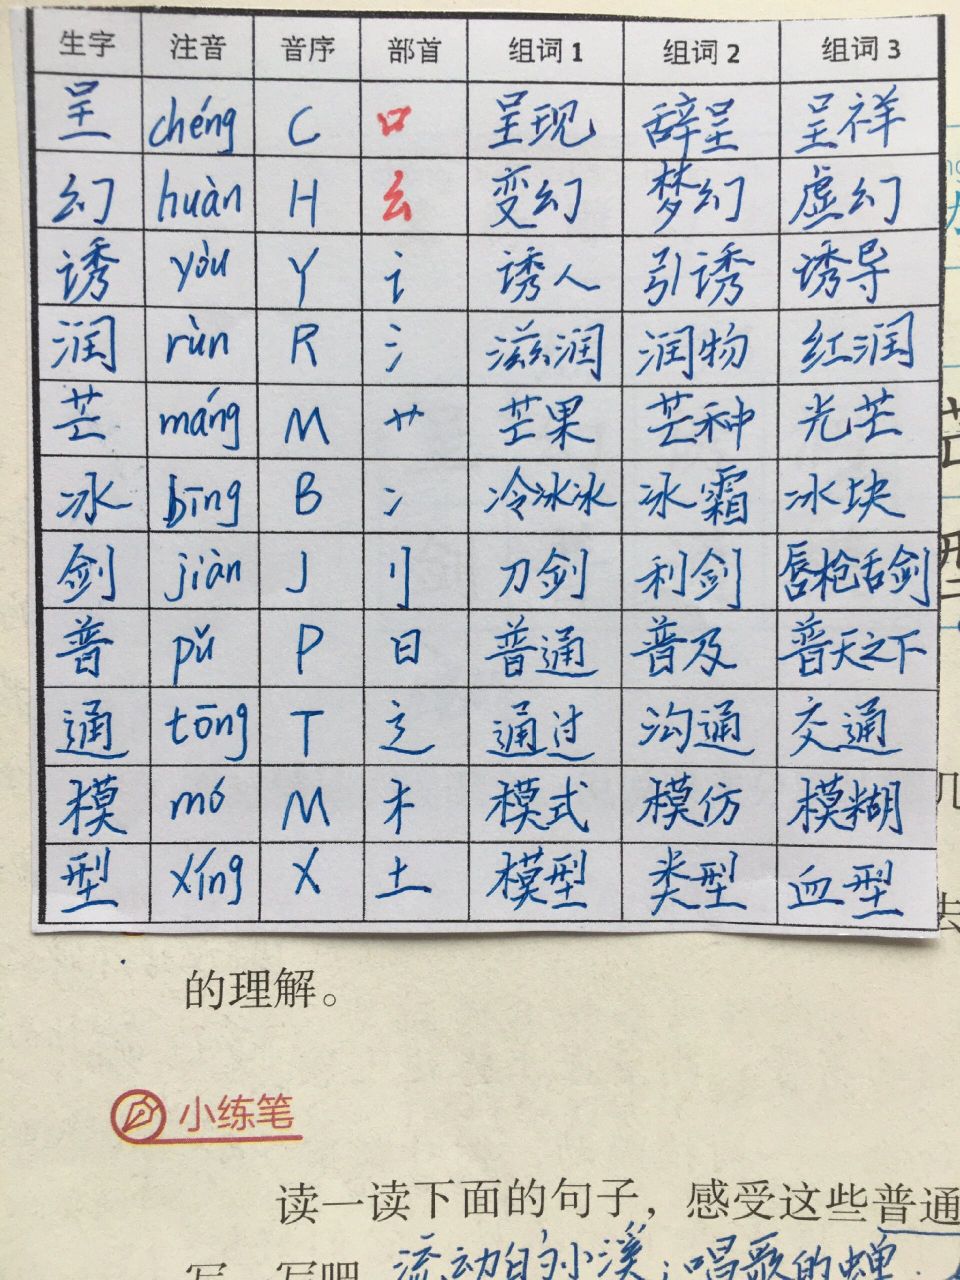 生字 注音 音序 部首 组词1 组词2 组词3
呈 chéng C 口 呈现 辞呈 呈祥
幻 huàn H 幺 变幻 梦幻 虚幻
诱 yòu Y 讠 诱人 引诱 诱导
润 rùn R 氵 滋润 润物 红润
芒 máng M 艹 芒果 芒种 光芒
冰 bīng B 冫 冷冰冰 冰霜 冰块
剑 jiàn J 刂 刀剑 利剑 唇枪舌剑
普 pǔ P 日 普通 普及 普天之下
通 tōng T 辶 通过 沟通 交通
模 mó M 木 模式 模仿 模糊
型 xíng X 土 模型 类型 血型
的理解。
小练笔
读一读下面的句子，感受这些普通
写一写吧 流动的小溪；唱歌的蝉